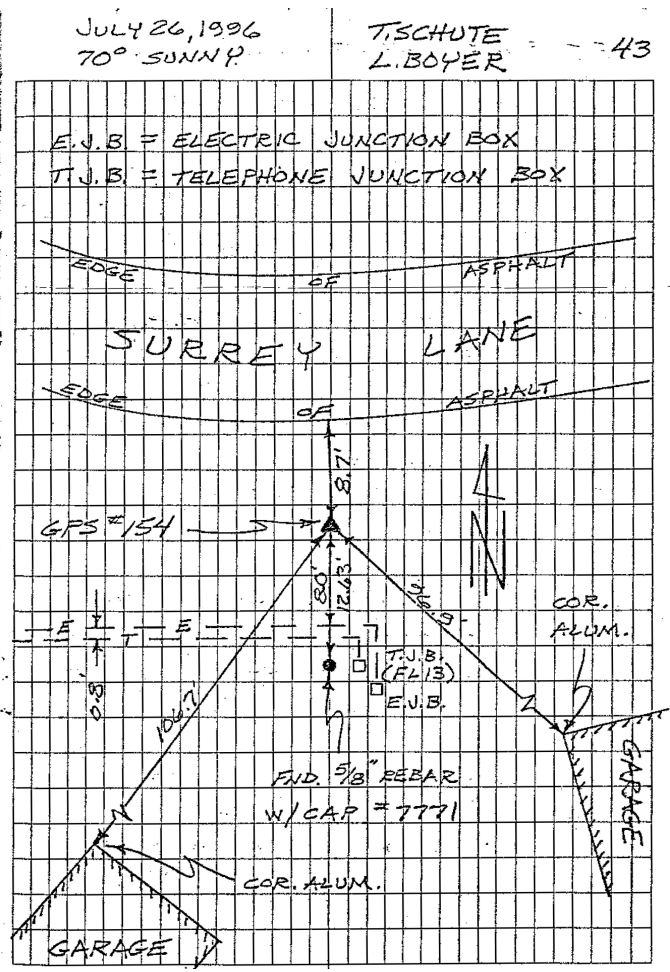 JULY 26, 1996
70° SUNNY
T. SCHUTE
L. BOYER
43
E.J.B. = ELECTRIC JUNCTION BOX
T.J.B. = TELEPHONE JUNCTION BOX
EDGE OF ASPHALT
SURREY LANE
EDGE OF ASPHALT
8.7'
GPS #154
N
80'
12.63'
COR.
ALUM.
E E
T
0.8'
T.J.B.
(FL13)
E.J.B.
106.7'
FND. 5/8" REBAR
W/CAP #7771
GARAGE
COR. ALUM.
GARAGE